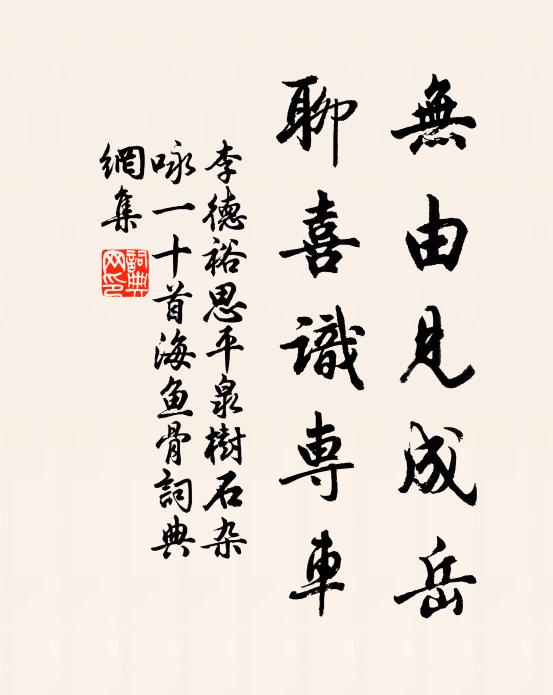 無由見成岳
聊喜識専車
李德裕思平泉樹石杂
咏一十首海鱼骨詞典
網集
詞典
网印